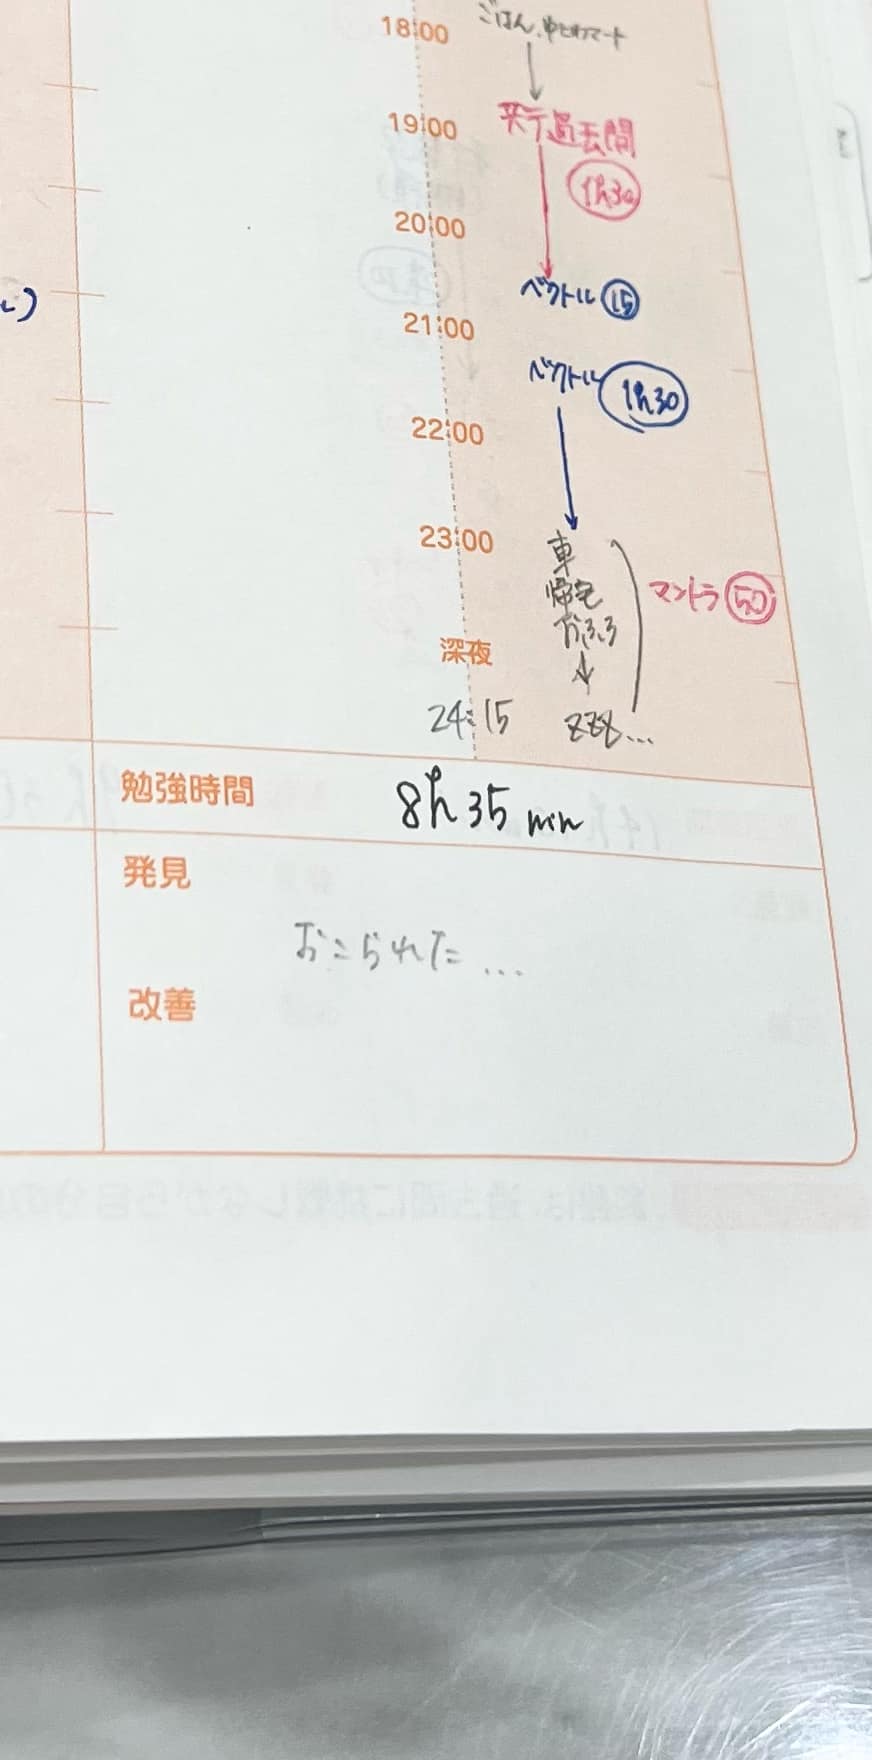 18:00
ごはん、
19:00
過去問
1h30
20:00
ベクトル 15
21:00
ベクトル 1h30
22:00
23:00
車
帰宅
おふろ
マントラ 50
深夜
24:15 zzz...
勉強時間 8h35min
発見
おこられた...
改善